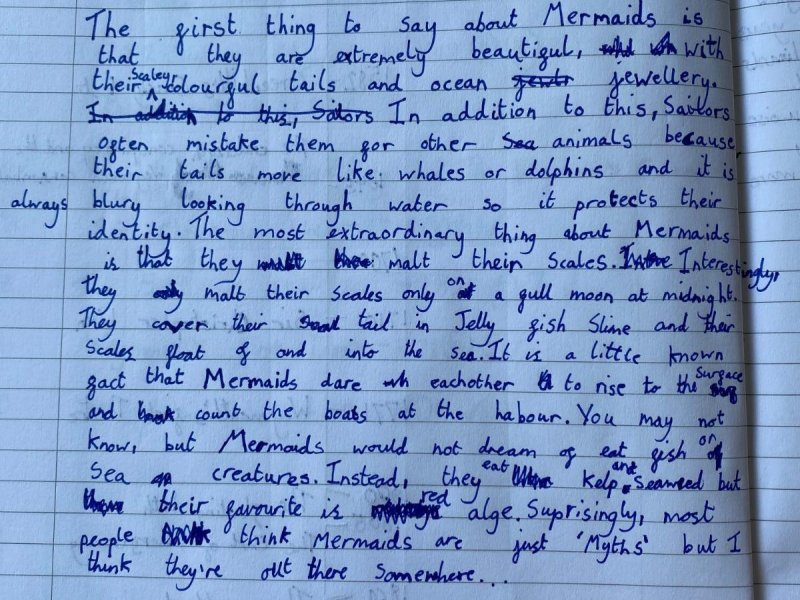 The first thing to say about Mermaids is
that they are extremely beautiful, with
their Scaley colourful tails and ocean jewellery.
In addition to this, Sailors In addition to this, Sailors
often mistake them for other Sea animals because
their tails move like whales or dolphins and it is
always blury looking through water so it protects their
identity. The most extraordinary thing about Mermaids
is that they malt their Scales. Interestingly,
they malt their scales only on a full moon at midnight.
They cover their tail in Jelly fish Slime and their
Scales float of and into the sea. It is a little known
fact that Mermaids dare eachother to rise to the surface
and count the boats at the habour. You may not
know, but Mermaids would not dream of eat fish or
Sea creatures. Instead, they eat kelp and Seaweed but
their favourite is red alge. Suprisingly, most
people think Mermaids are just 'Myths' but I
think they're out there Somewhere...